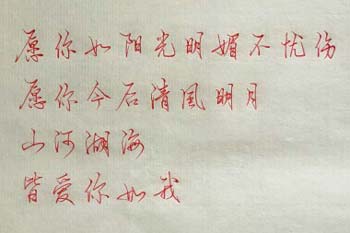 愿你如阳光明媚不忧伤
愿你今后清风明月
山河湖海
皆爱你如我